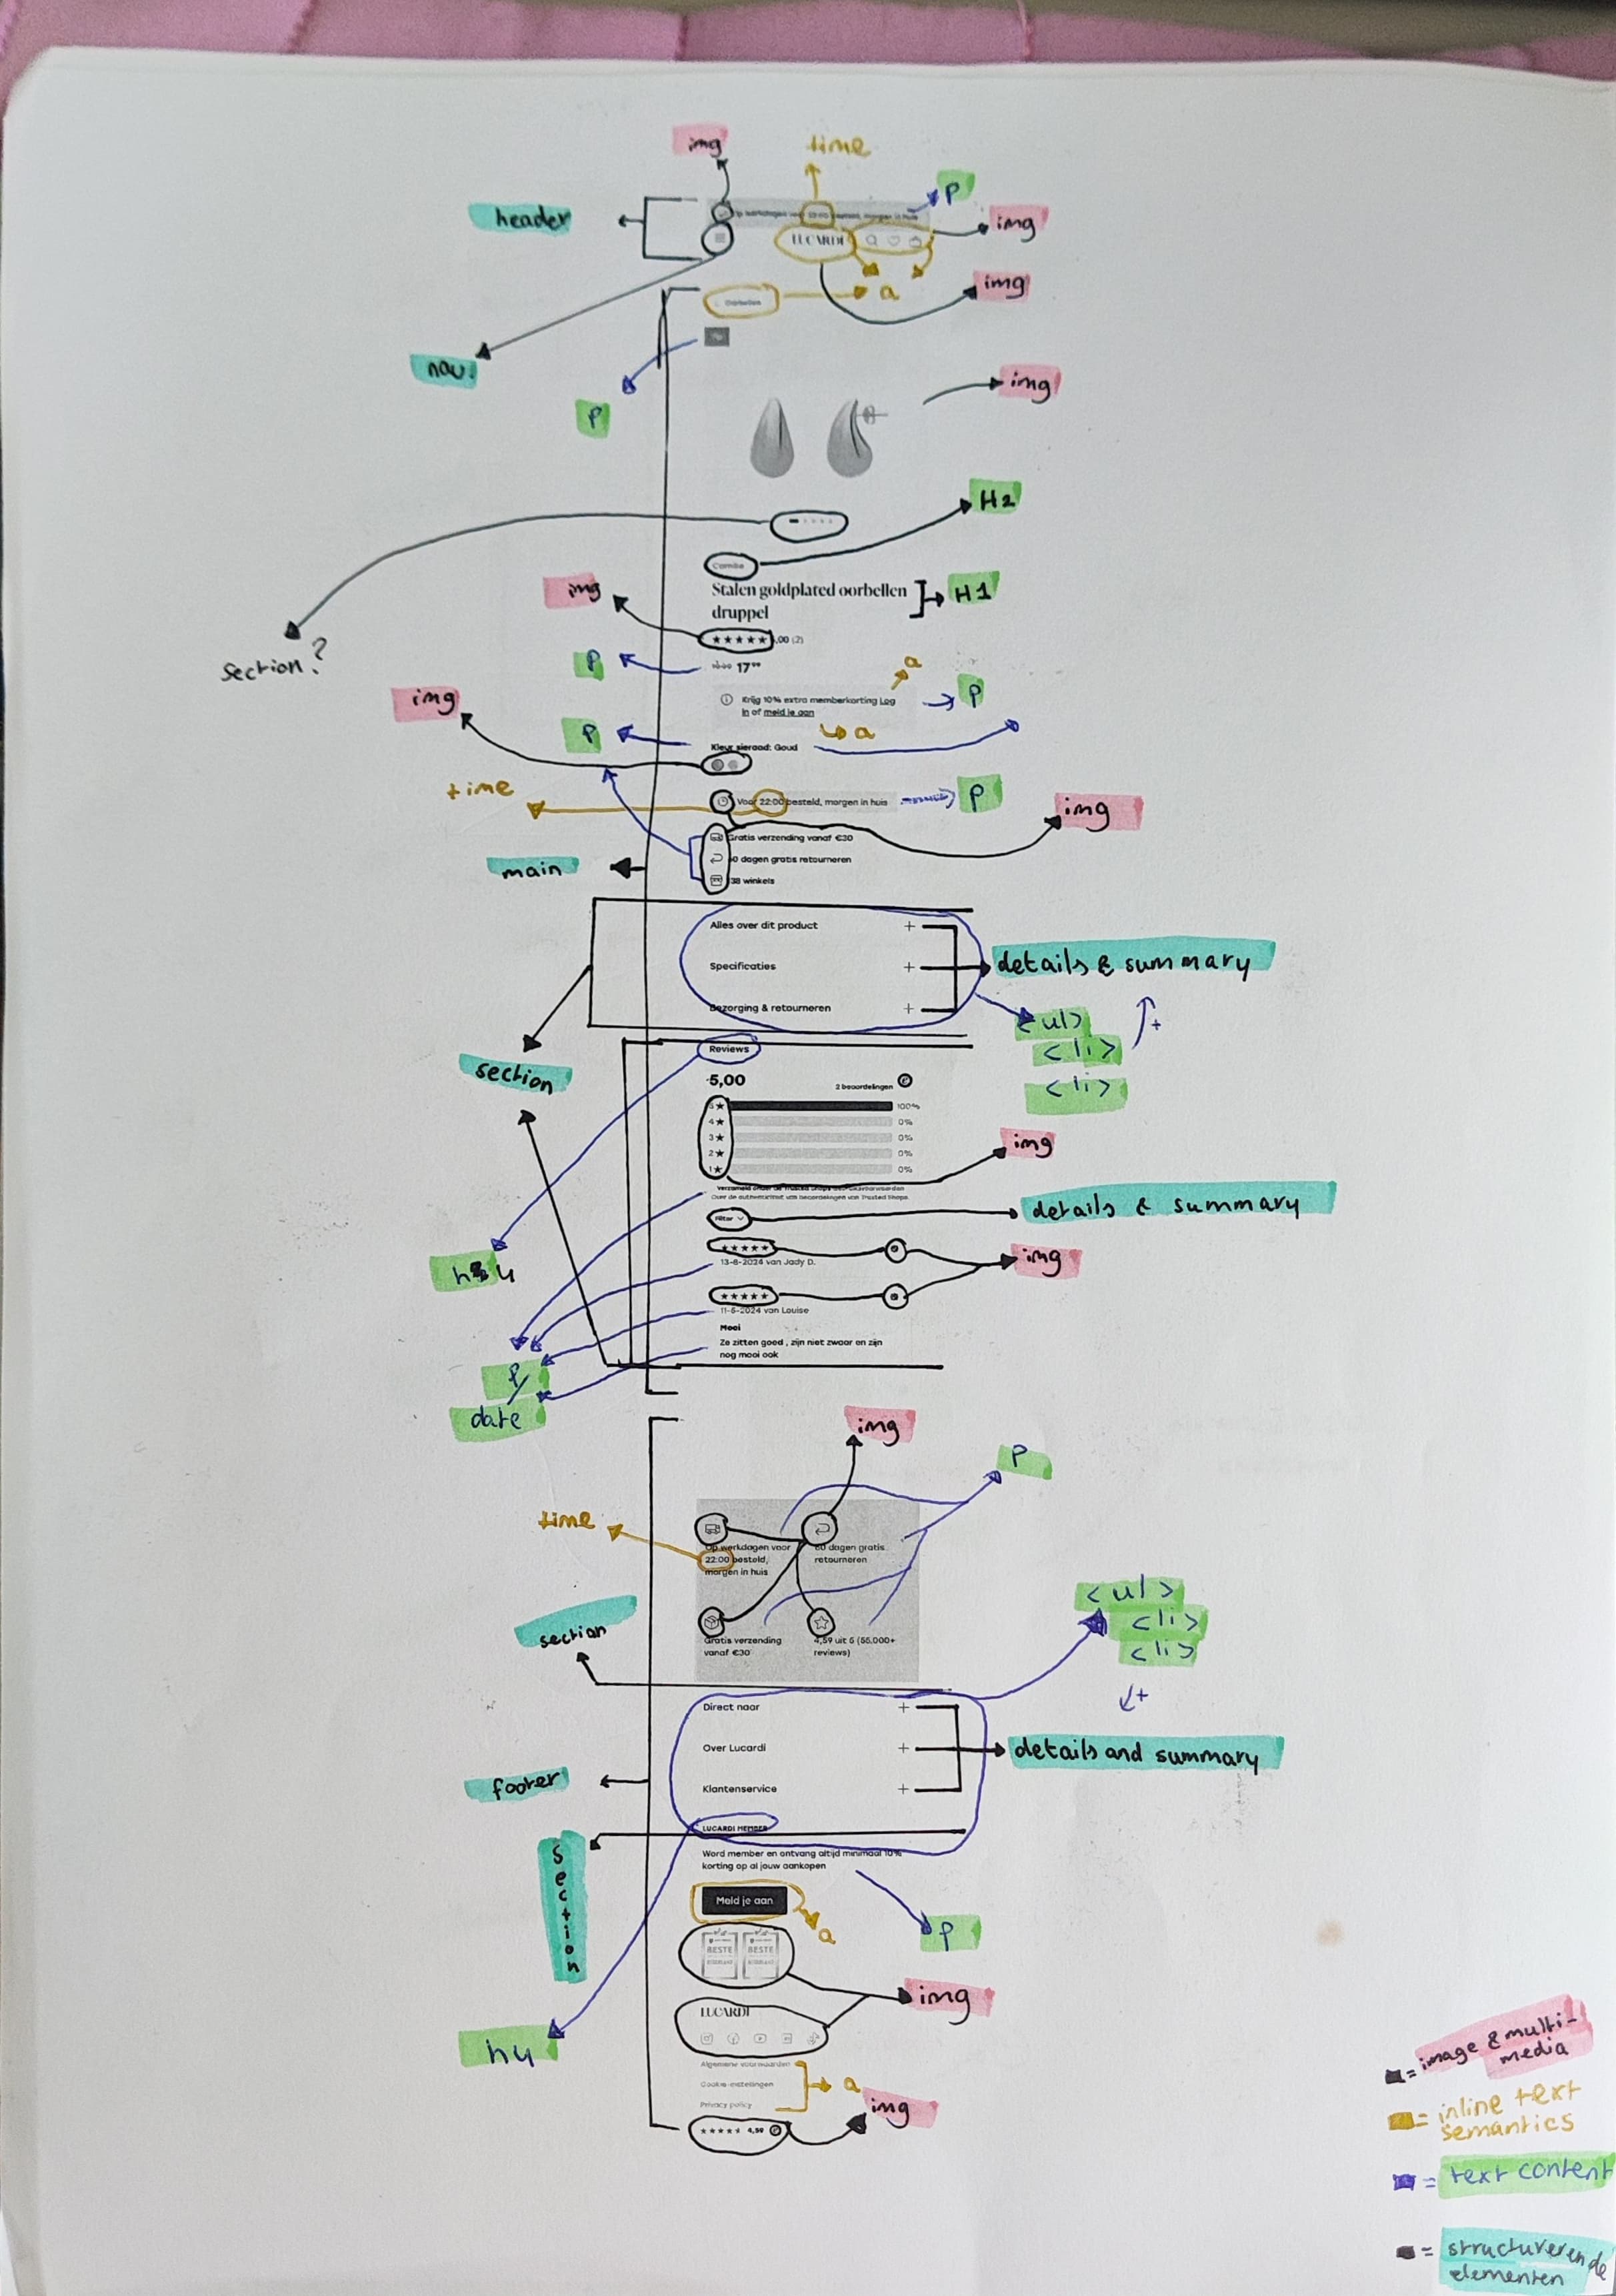 img
time
P
header
Op werkdagen voor 22:00 besteld, morgen in huis
img
LUCARDI
img
a
Oorbellen
nav.
P
img
H2
Camilla
img
Stalen goldplated oorbellen
druppel
H1
section?
,00 (2)
P
17
a
img
Krijg 10% extra memberkorting Log
in of meld je aan
P
P
a
Kleur sieraad: Goud
time
Voor 22:00 besteld, morgen in huis
P
img
Gratis verzending vanaf €30
0 dagen gratis retourneren
main
38 winkels
Alles over dit product +
Specificaties +
details & summary
Bezorging & retourneren +
<ul>
+
<li>
<li>
Reviews
section
5,00
2 beoordelingen
5★ 100%
4★ 0%
3★ 0%
2★ 0%
1★ 0%
img
Over de authenticiteit van beoordelingen van Trusted Shops.
Filter
details & summary
★★★★★
img
13-6-2024 van Jady D.
h4
★★★★★
11-5-2024 van Louise
Mooi
Ze zitten goed , zijn niet zwaar en zijn
nog mooi ook
P/
date
img
P
time
Op werkdagen voor
22:00 besteld,
morgen in huis
60 dagen gratis
retourneren
section
Gratis verzending
vanaf €30
4,59 uit 5 (55.000+
reviews)
<ul>
<li>
<li>
+
Direct naar +
Over Lucardi +
details and summary
Klantenservice +
footer
LUCARDI MEMBER
section
Word member en ontvang altijd minimaal 10%
korting op al jouw aankopen
Meld je aan
a
P
BESTE BESTE
img
LUCARDI
h4
Algemene voorwaarden
Cookie-instellingen
Privacy policy
a
img
4,59
= image & multi-
media
= inline text
semantics
= text content
= structurerende
elementen